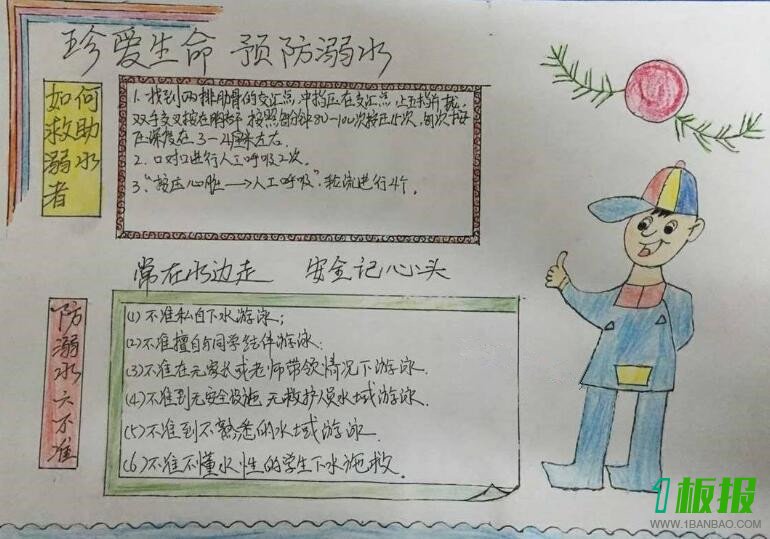 珍爱生命 预防溺水
如何救助溺水者
1. 找到两排肋骨的交汇点,中指压在交汇点上,五指并拢,
双手交叉按在胸部,按照每分钟80-100次按压15次,每次按
压深度在3-4厘米左右.
2. 口对口进行人工呼吸2次.
3."按压心脏→人工呼吸",轮流进行4个.
常在水边走 安全记心头
防溺水六不准
(1)不准私自下水游泳;
(2)不准擅自与同学结伴游泳.
(3)不准在无家长或老师带领情况下游泳.
(4)不准到无安全设施,无救护人员水域游泳.
(5)不准到不熟悉的水域游泳.
(6)不准不懂水性的学生下水施救.
1板报
WWW.1BANBAO.COM